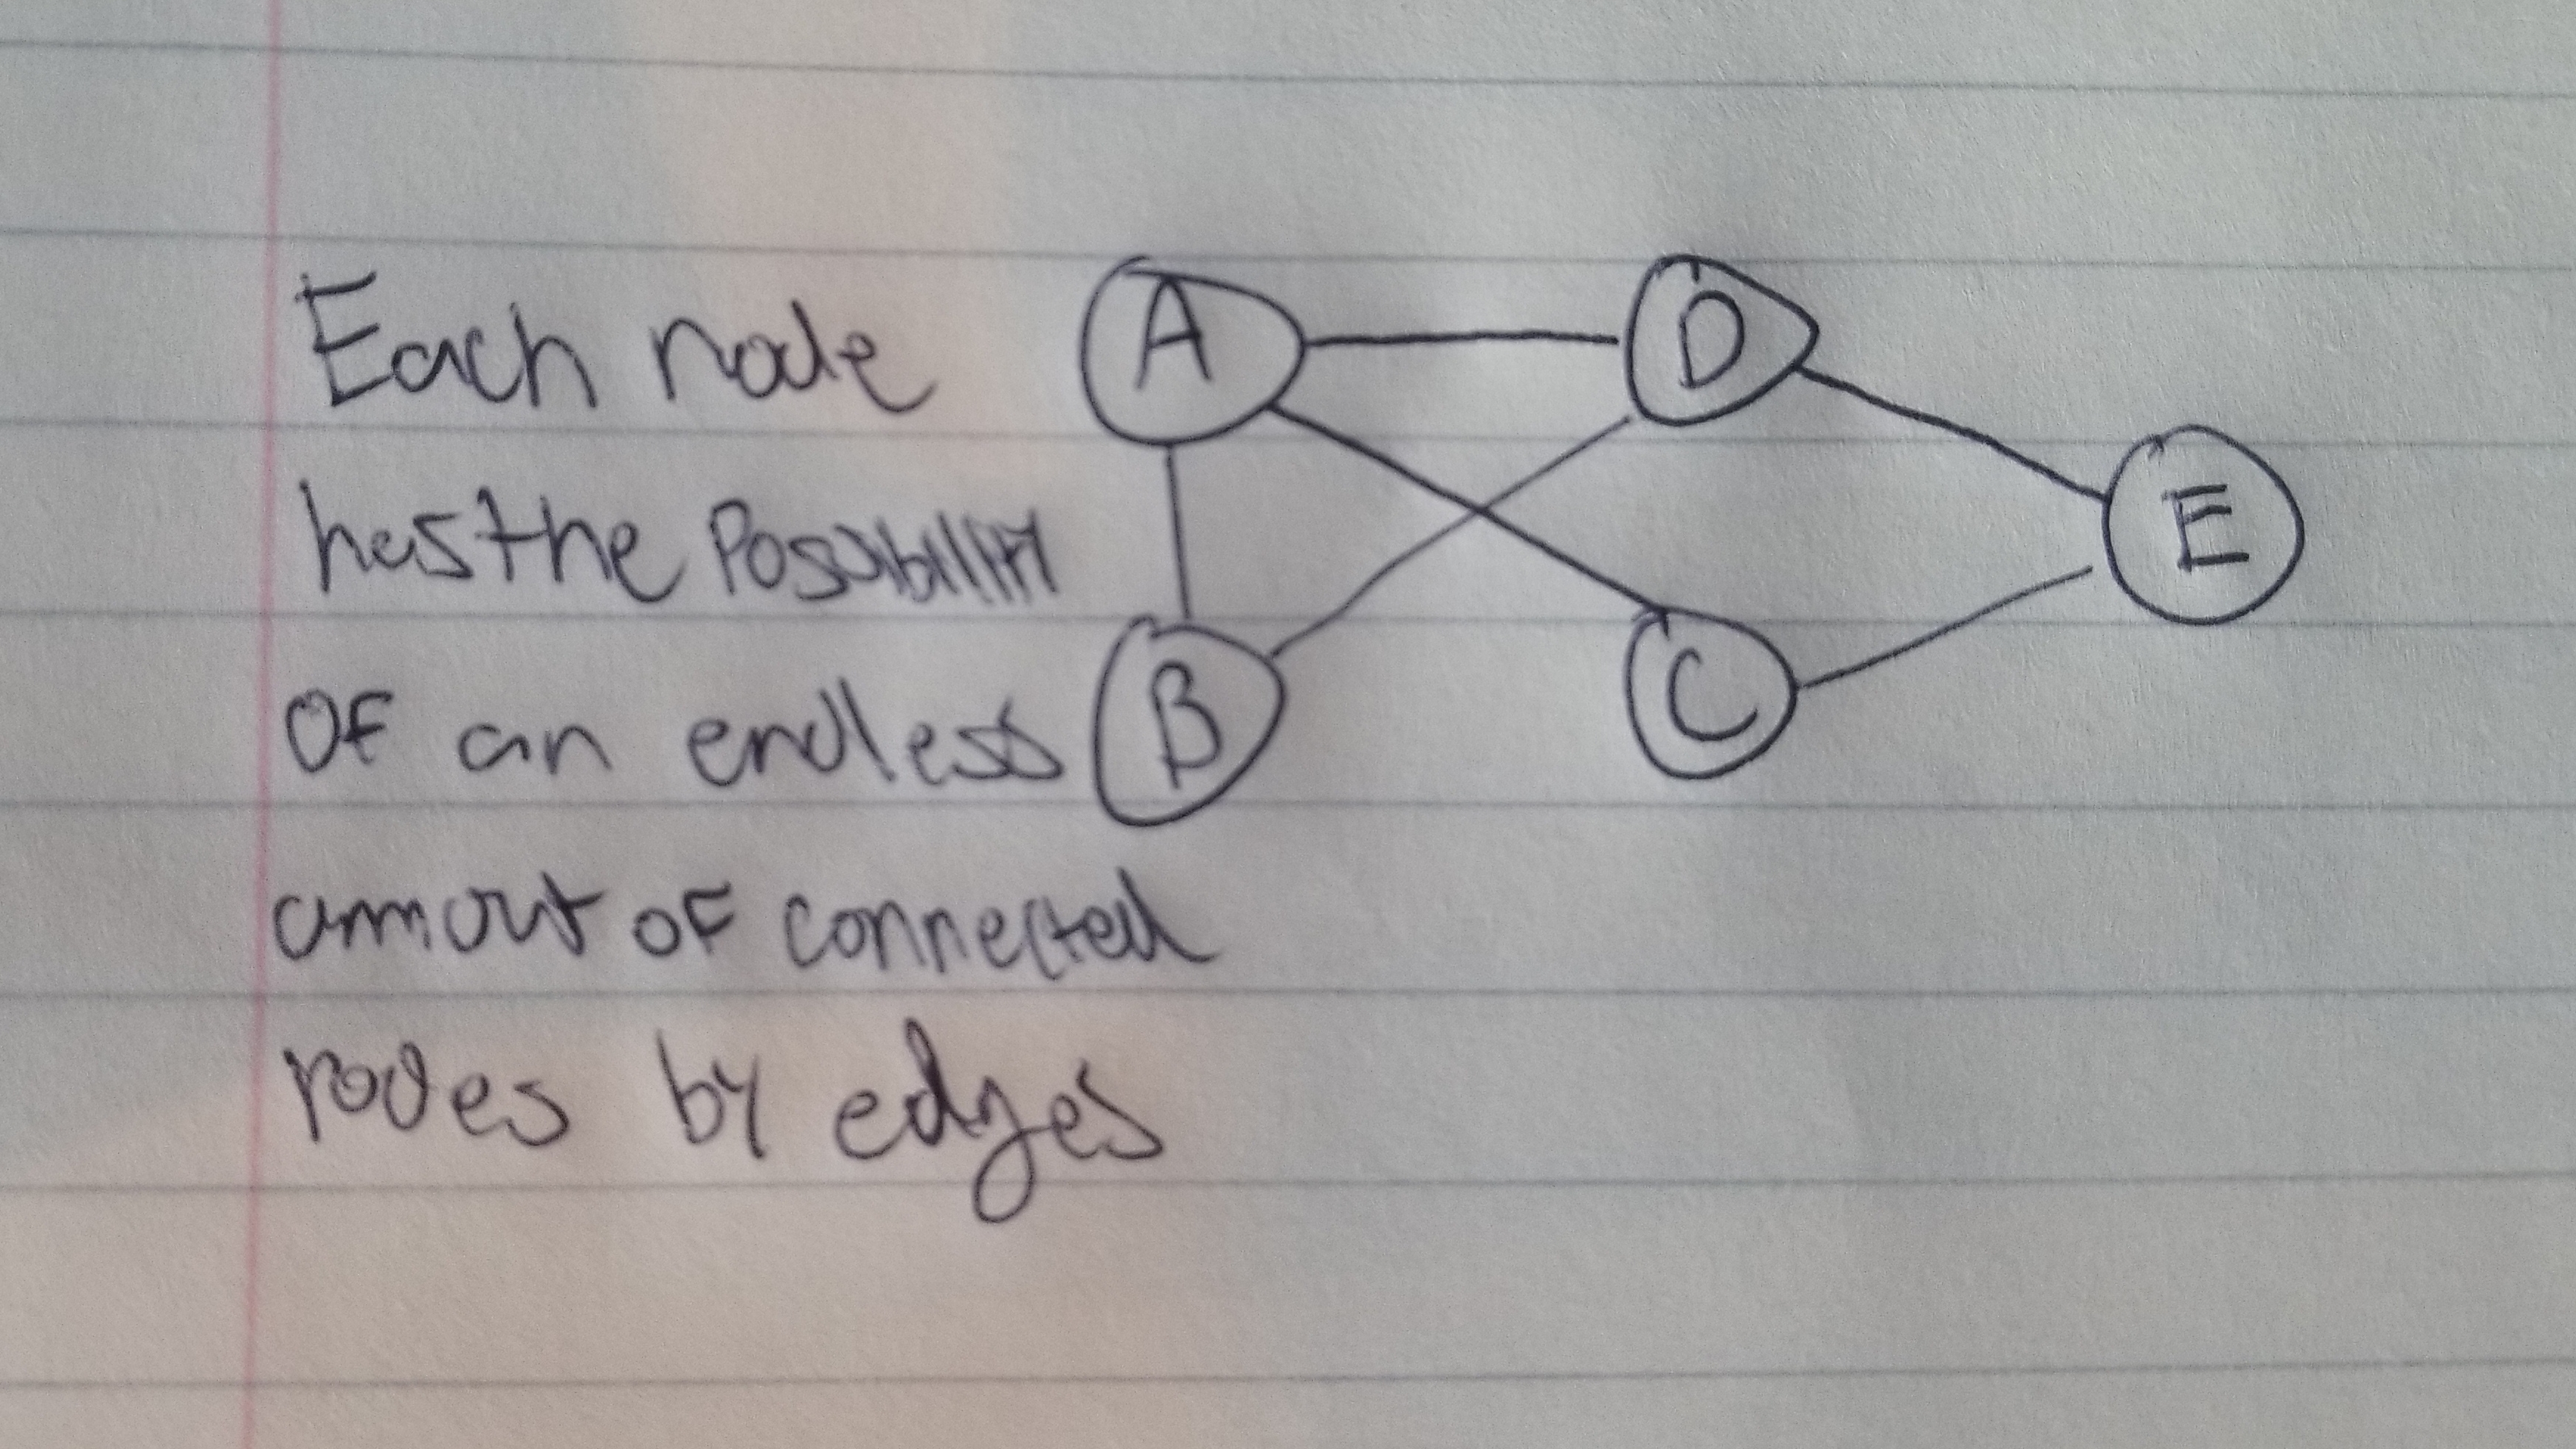 Each node
has the Possibility
OF an endless
amout OF connected
nodes by edges
A
D
E
B
C